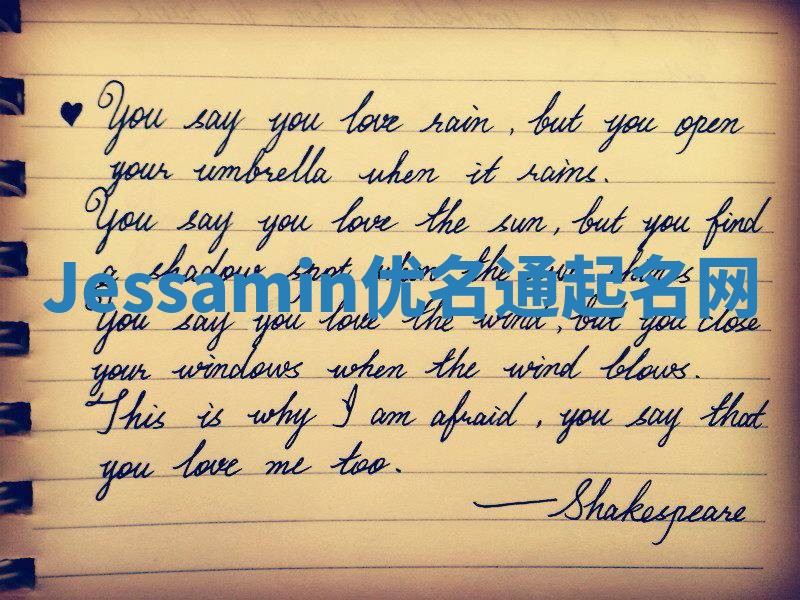 ♥ You say you love rain, but you open
your umbrella when it rains.
You say you love the sun, but you find
a shadow spot when the sun shines
Jessamin优名通起名网
You say you love the wind, but you close
your windows when the wind blows.
This is why I am afraid, you say that
you love me too.
—Shakespeare